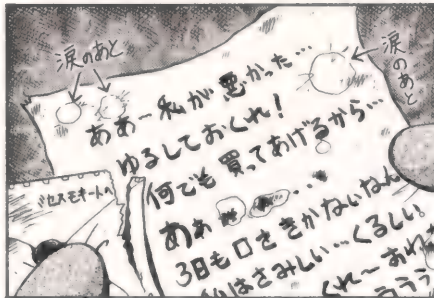 涙のあと
涙のあと
ああ～私が悪かった…
ゆるしておくれ!
何でも買ってあげるから…
あぁ…
3日も口さきかないなん
はさみしい…くるしい
くれ～
ううう